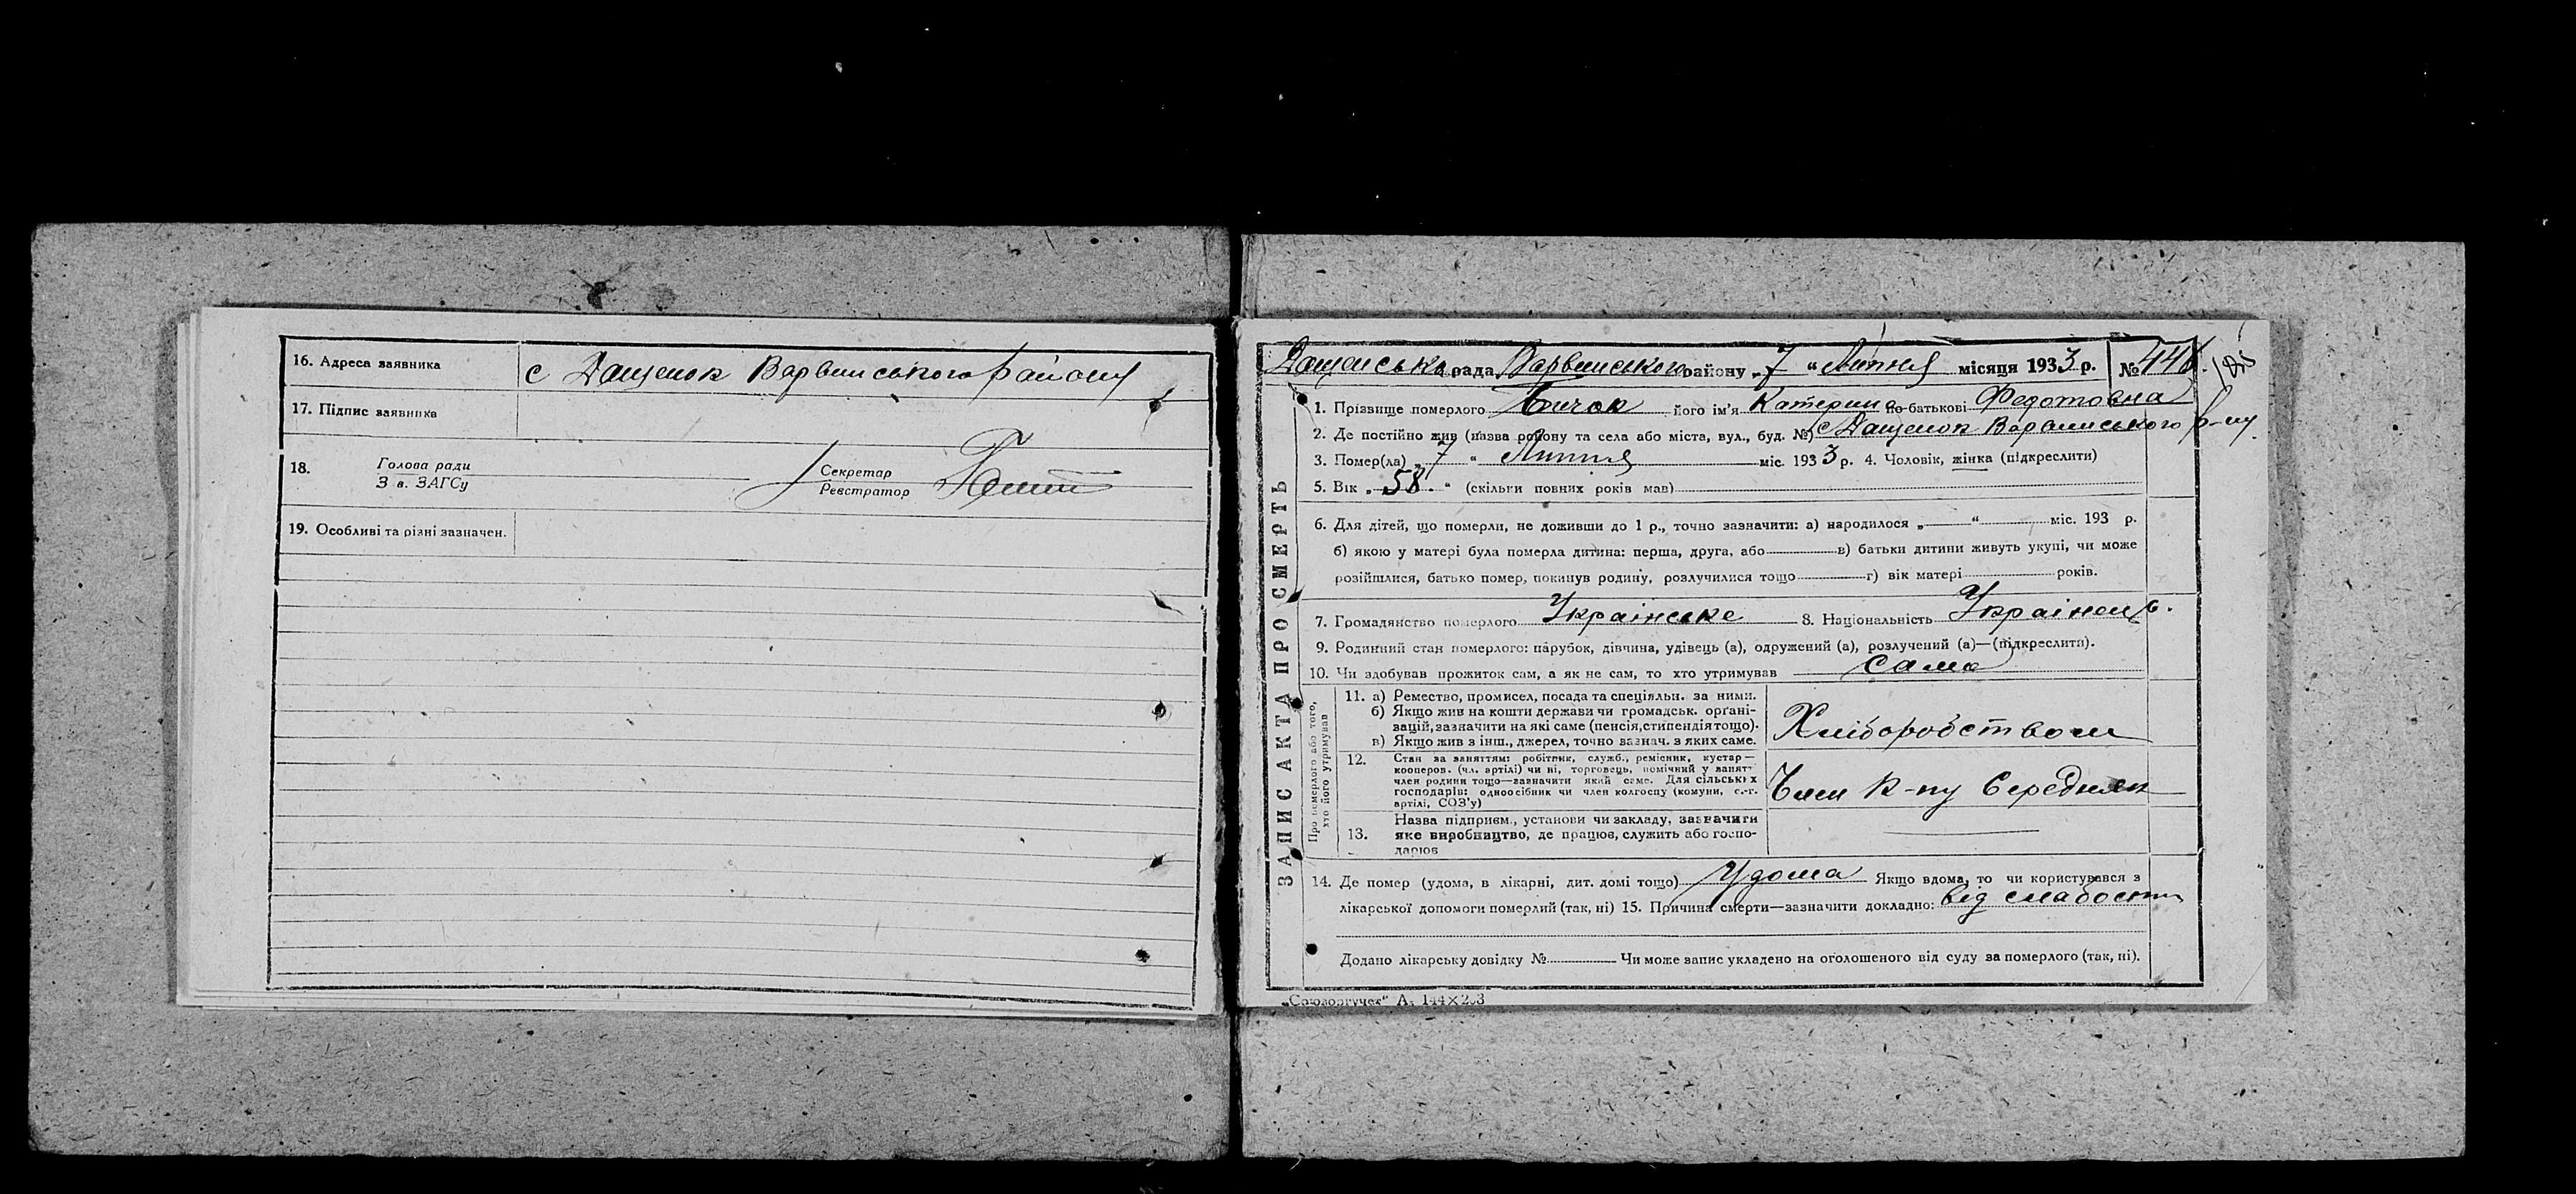 16. Адреса заявника с Дащенок Варвинського району
17. Підпис заявника
18. Голова ради
З в. ЗАГСу
Секретар
Реєстратор
19. Особливі та різні зазначен.
ЗАПИС АКТА ПРО СМЕРТЬ
Дащенська рада Варвинського району „7“ Липня місяця 1933 р. № 448.
1. Прізвище померлого Бичок його ім'я Катерина по-батькові Федотовна
2. Де постійно жив (назва району та села або міста, вул., буд. №) с Дащенок Варвинського р-ну.
3. Помер(ла) „7“ Липня міс. 1933 р. 4. Чоловік, жінка (підкреслити)
5. Вік „58.“ (скільки повних років мав)
6. Для дітей, що померли, не доживши до 1 р., точно зазначити: а) народилося „ “ міс. 193 р.
б) якою у матері була померла дитина: перша, друга, або в) батьки дитини живуть укупі, чи може
розійшлися, батько помер, покинув родину, розлучилися тощо г) вік матері років.
7. Громадянство померлого Українське 8. Національність Українець.
9. Родинний стан померлого: парубок, дівчина, удівець (а), одружений (а), розлучений (а)—(підкреслити).
10. Чи здобував прожиток сам, а як не сам, то хто утримував сама
Про померлого або того,
хто його утримував
11. а) Ремество, промисел, посада та спеціяльн. за ними.
б) Якщо жив на кошти держави чи громадськ. органі-
зацій, зазначити на які саме (пенсія, стипендія тощо).
в) Якщо жив з інш., джерел, точно вазнач. з яких саме.
Хліборобством
12. Стан за заняттям: робітник, служб., ремісник, кустар—
кооперов. (чл. артілі) чи ні, торговець, помічний у занятт
член родини тощо—зазначити який саме. Для сільських
господарів: одноосібник чи член колгоспу (комуни, с.-г.
артілі, СОЗ'у)
Член к-пу Середняк
13. Назва підприєм., установи чи закладу, зазначити
яке виробництво, де працює, служить або госпо-
дарює
14. Де помер (удома, в лікарні, дит. домі тощо) Удома Якщо вдома, то чи користувався з
лікарської допомоги померлий (так, ні) 15. Причина смерти—зазначити докладно: від слабости
Додано лікарську довідку № Чи може запис укладено на оголошеного від суду за померлого (так, ні).
„Союзоргучет“ А₅ 144×203